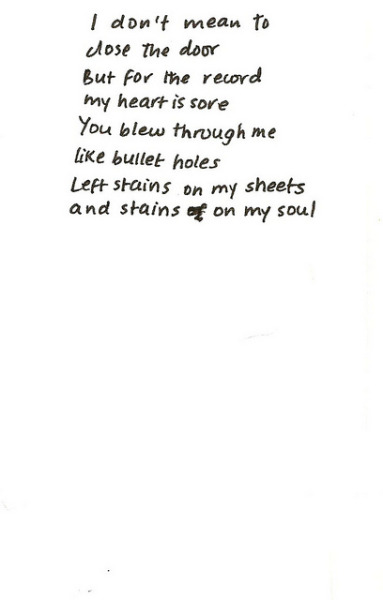 I don't mean to
close the door
But for the record
my heart is sore
You blew through me
like bullet holes
Left stains on my sheets
and stains on my soul